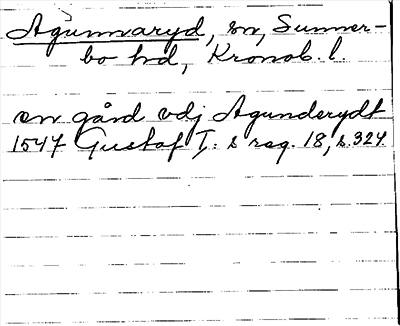 Agunnaryd, sn, Sunner-
bo hd, Kronob. l.
en gård vdj Agunderydt
1547 Gustaf I: s reg. 18, s. 324.